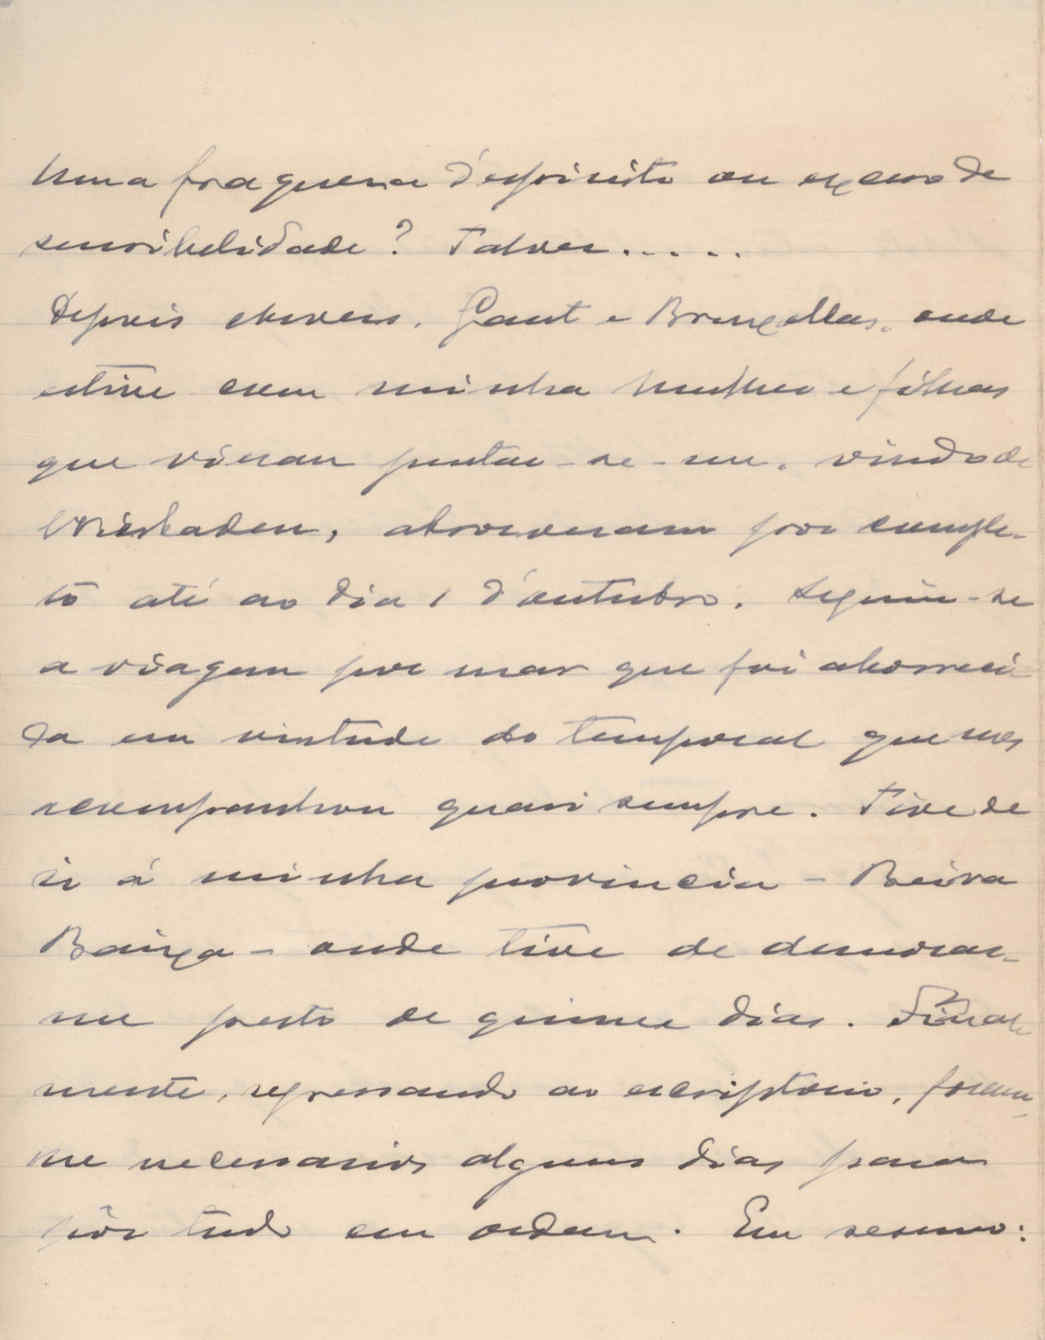 Uma fraqueza d'espirito ou excesso de
sensibilidade? Talvez.....
Depois Gant e Bruxellas, onde
estive com minha mulher e filhas
que vieram juntar-se-me, vindo de
Wiesbaden, absorveram por comple-
to até ao dia 1 d'outubro. Seguiu-se
a viagem por mar que foi aborreci
da em virtude do temporal que nos
acompanhou quasi sempre. Tive de
ir á minha provincia - Beira
Baixa - onde tive de demorar-
me perto de quinze dias. Final-
mente, regressando ao escriptorio, foram-
me necessarios alguns dias para
pôr tudo em ordem. Em resumo: